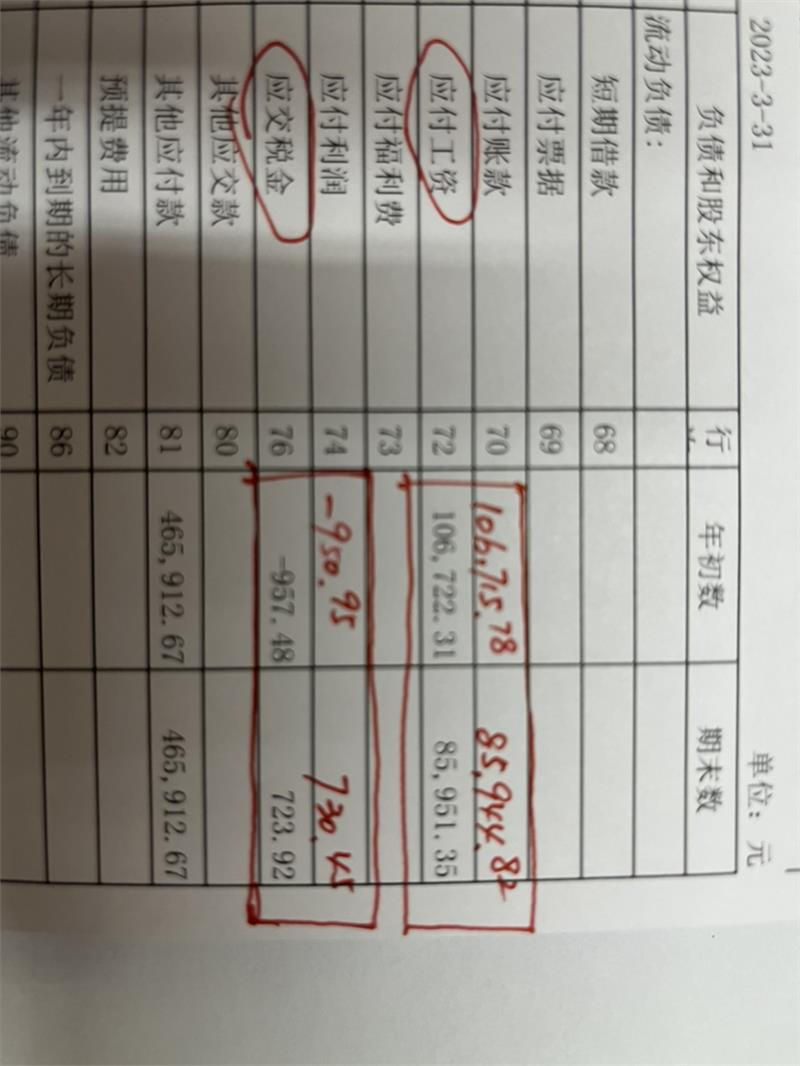 2023-3-31 单位：元
负债和股东权益 行 年初数 期末数
流动负债：
短期借款 68
应付票据 69
应付账款 70 106,715.78 85,944.82
应付工资 72 106,722.31 85,951.35
应付福利费 73
应付利润 74 -950.95 730.45
应交税金 76 -957.48 723.92
其他应交款 80
其他应付款 81 465,912.67 465,912.67
预提费用 82
一年内到期的长期负债 86
其他流动负债 90